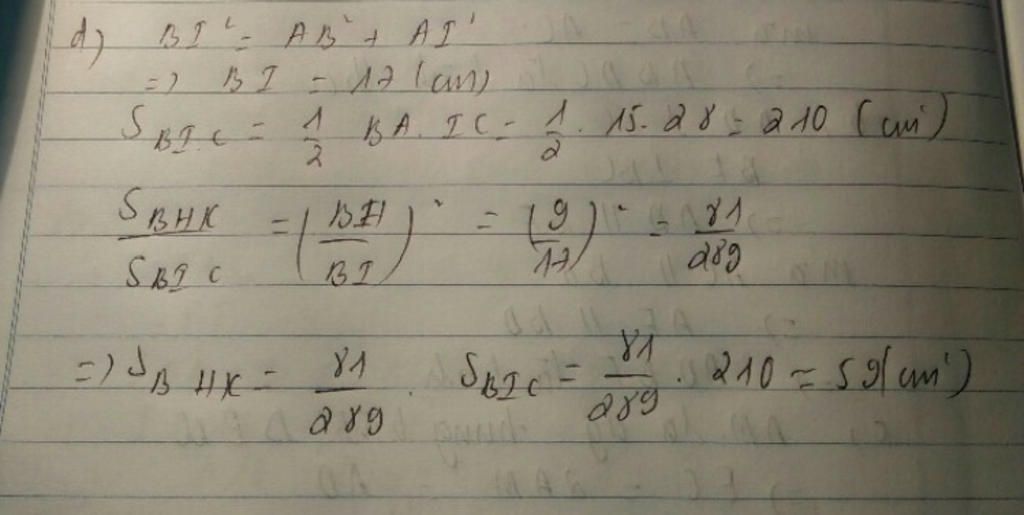 d) BI² = AB² + AI²
=) BI = 17 (cm)
S_BIC = 1/2 BA. IC = 1/2 . 15. 28 = 210 (cm²)
S_BHK / S_BIC = (BH / BI)² = (9 / 17)² = 81 / 289
=) S_BHK = 81 / 289 . S_BIC = 81 / 289 . 210 = 59 (cm²)